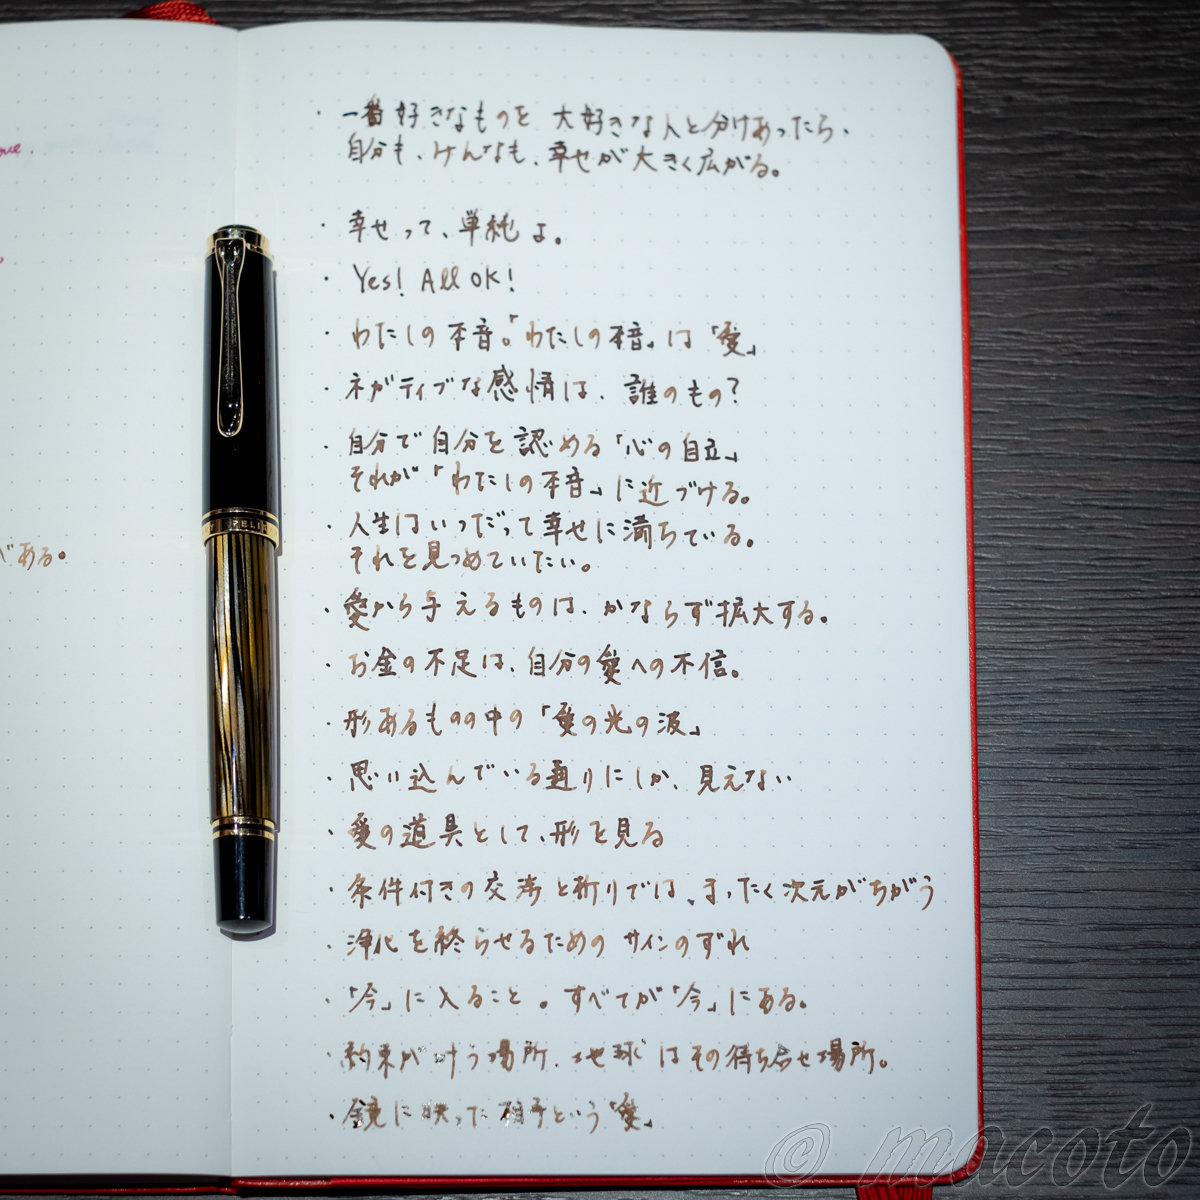 ・一番好きなものを 大好きな人と分けあったら、
自分も、みんなも、幸せが大きく広がる。
・幸せって、単純よ。
・Yes! All OK!
・わたしの本音。「わたしの本音」は「愛」
・ネガティブな感情は、誰のもの?
・自分で自分を認める「心の自立」
それが「わたしの本音」に近づける。
・人生はいつだって幸せに満ちている。
それを見つめていたい。
・愛から与えるものは、かならず拡大する。
・お金の不足は、自分の愛への不信。
・形あるものの中の「愛の光の波」
・思い込んでいる通りにしか、見えない
・愛の道具として、形を見る
・条件付きの交渉と祈りでは、まったく次元がちがう
・浄化を終らせるための サインのずれ
・「今」に入ること。すべてが「今」にある。
・約束が叶う場所、地球はその待ち合せ場所。
・鏡に映った相手という「愛」
がある。
PELIK
© macoto